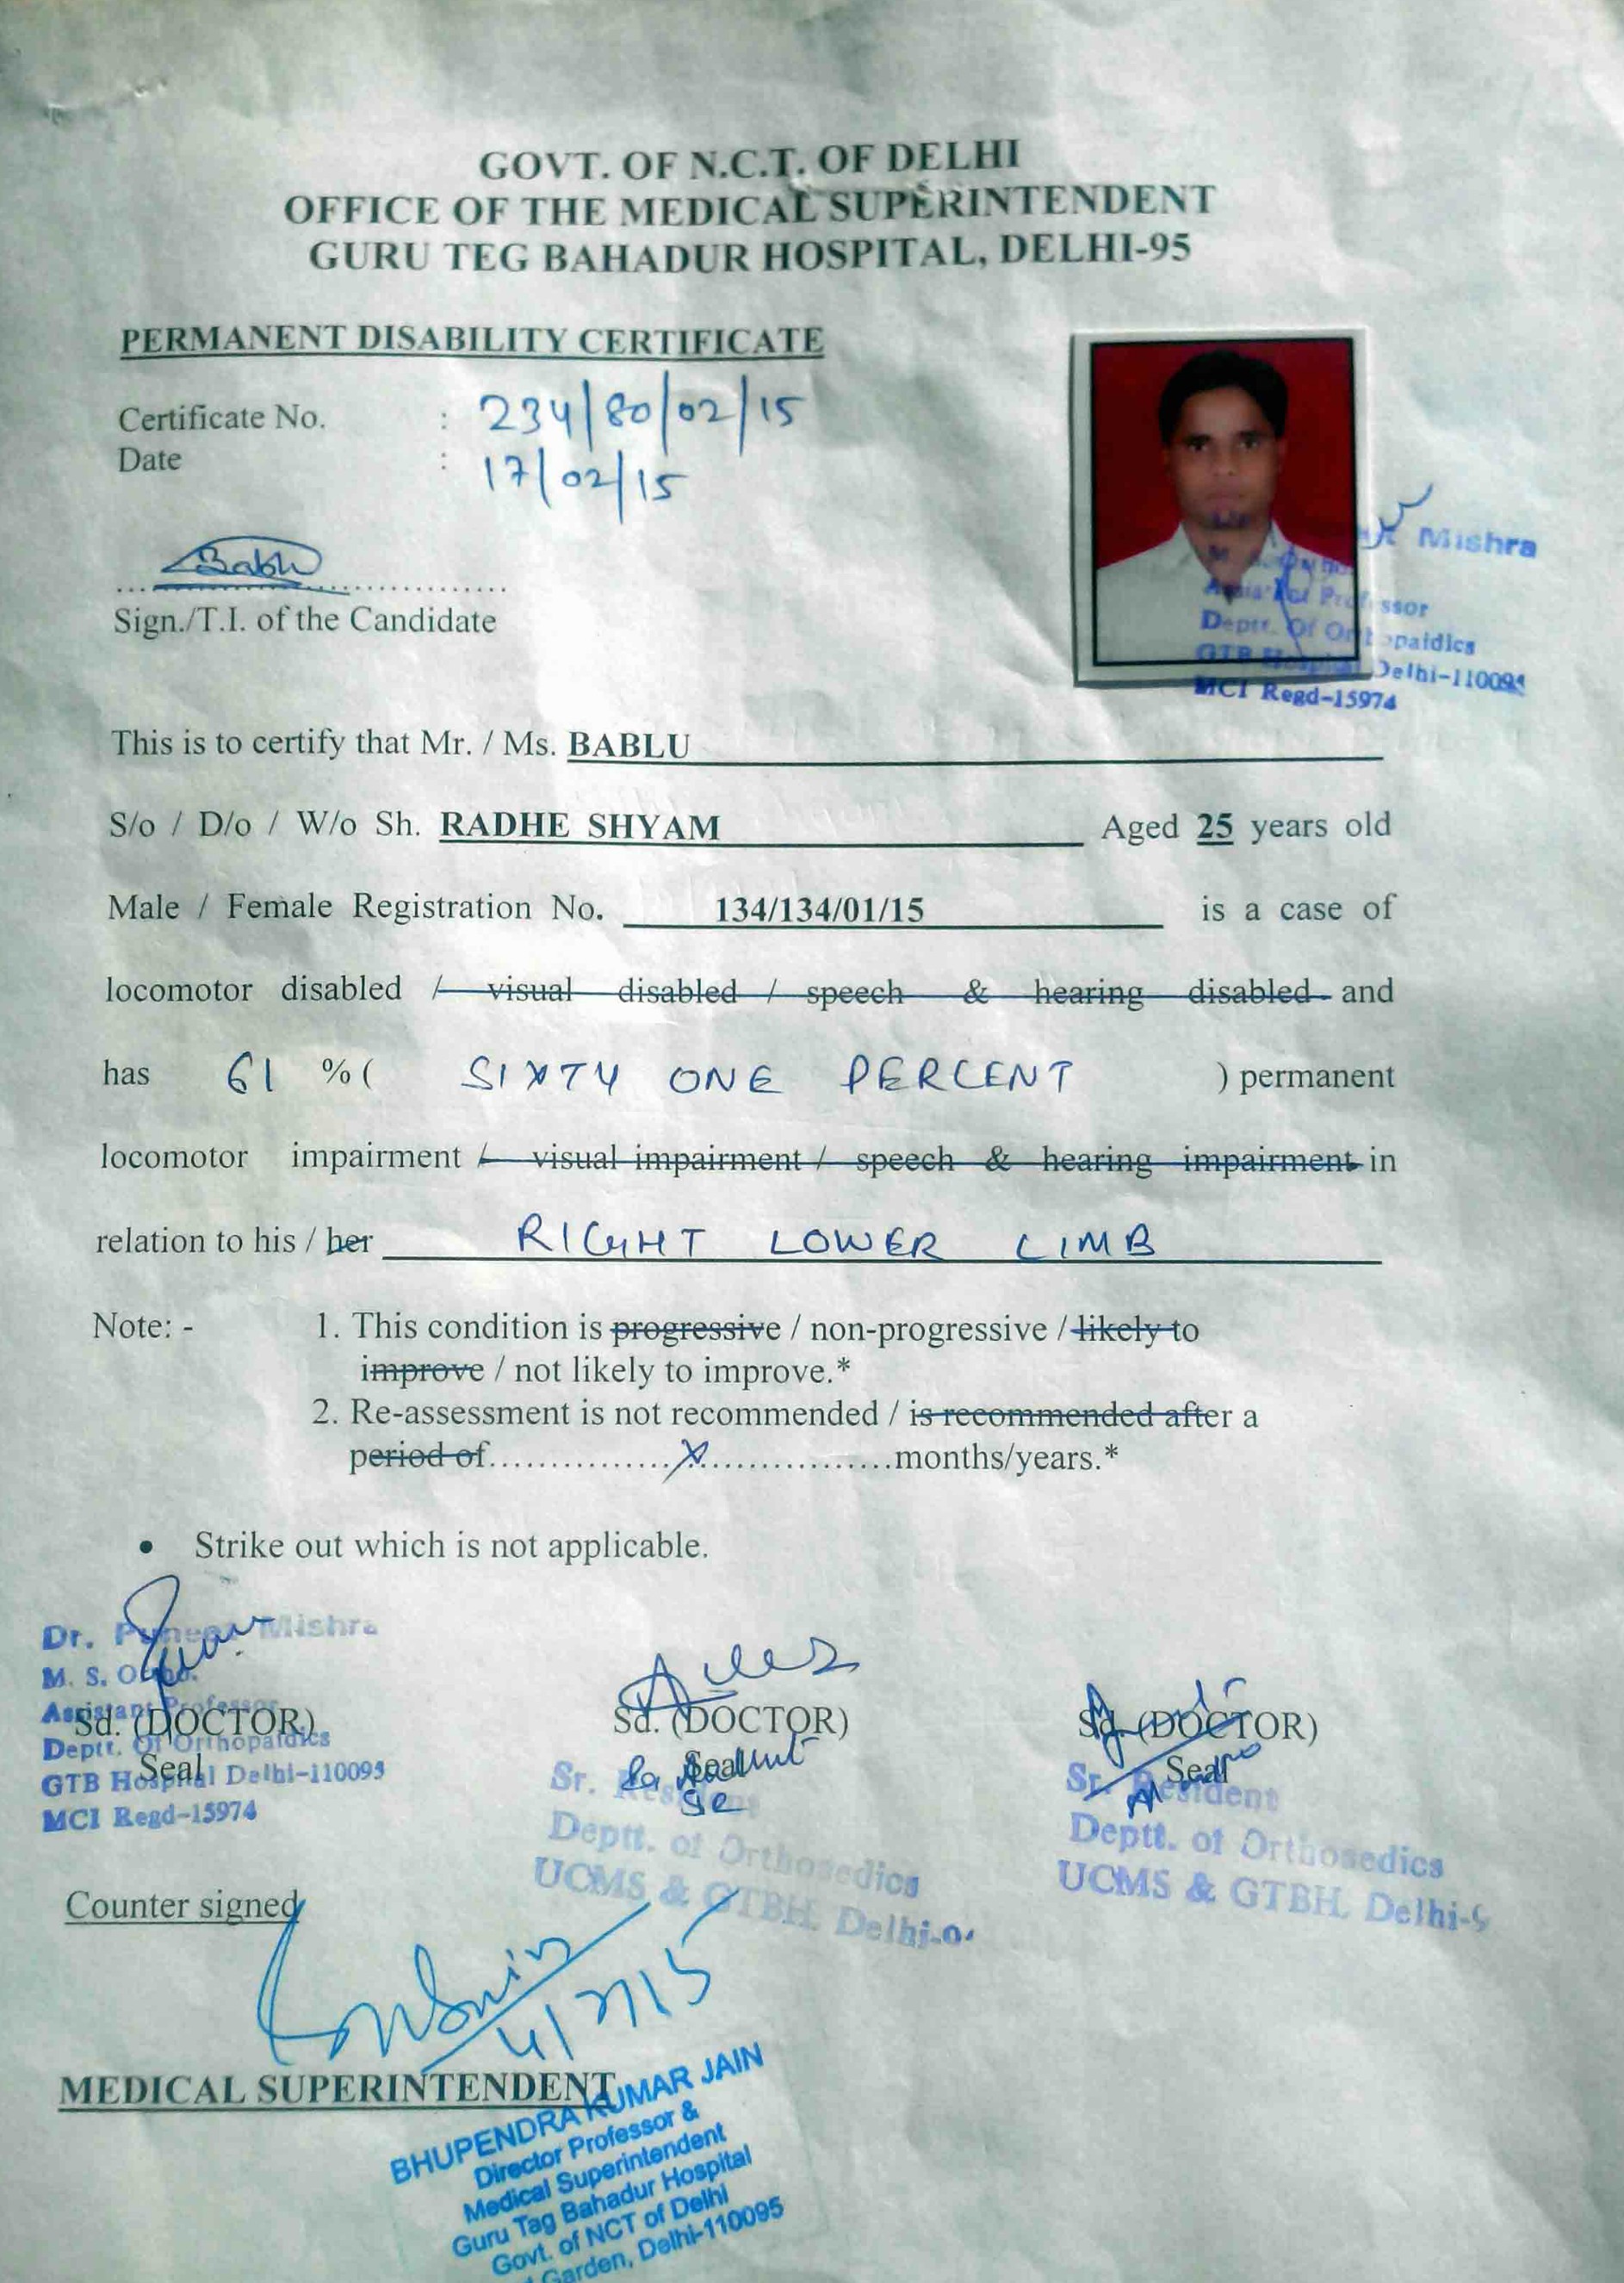 GOVT. OF N.C.T. OF DELHI
OFFICE OF THE MEDICAL SUPERINTENDENT
GURU TEG BAHADUR HOSPITAL, DELHI-95
PERMANENT DISABILITY CERTIFICATE
Certificate No. : 234/80/02/15
Date : 17/02/15
Bablu
Sign./T.I. of the Candidate
Mishra
Assistant Professor
Deptt. Of Orthopaidics
GTB Hospital Delhi-110095
MCI Regd-15974
This is to certify that Mr. / Ms. BABLU
S/o / D/o / W/o Sh. RADHE SHYAM Aged 25 years old
Male / Female Registration No. 134/134/01/15 is a case of
locomotor disabled / visual disabled / speech & hearing disabled and
has 61 % ( SIXTY ONE PERCENT ) permanent
locomotor impairment / visual impairment / speech & hearing impairment in
relation to his / her RIGHT LOWER LIMB
Note: - 1. This condition is progressive / non-progressive / likely to
improve / not likely to improve.*
2. Re-assessment is not recommended / is recommended after a
period of...............X................months/years.*
• Strike out which is not applicable.
Dr. Mishra
M. S. Ortho.
Assistant Professor
Sd. (DOCTOR)
Deptt. Of Orthopaidics
Seal
GTB Hospital Delhi-110095
MCI Regd-15974
Sd. (DOCTOR)
Seal
Sr. Resident
Deptt. of Orthopedics
UCMS & GTBH, Delhi
Sd. (DOCTOR)
Seal
Sr. Resident
Deptt. of Orthopedics
UCMS & GTBH, Delhi
Counter signed
MEDICAL SUPERINTENDENT
BHUPENDRA KUMAR JAIN
Director Professor &
Medical Superintendent
Guru Tag Bahadur Hospital
Govt. of NCT of Delhi
Garden, Delhi-110095